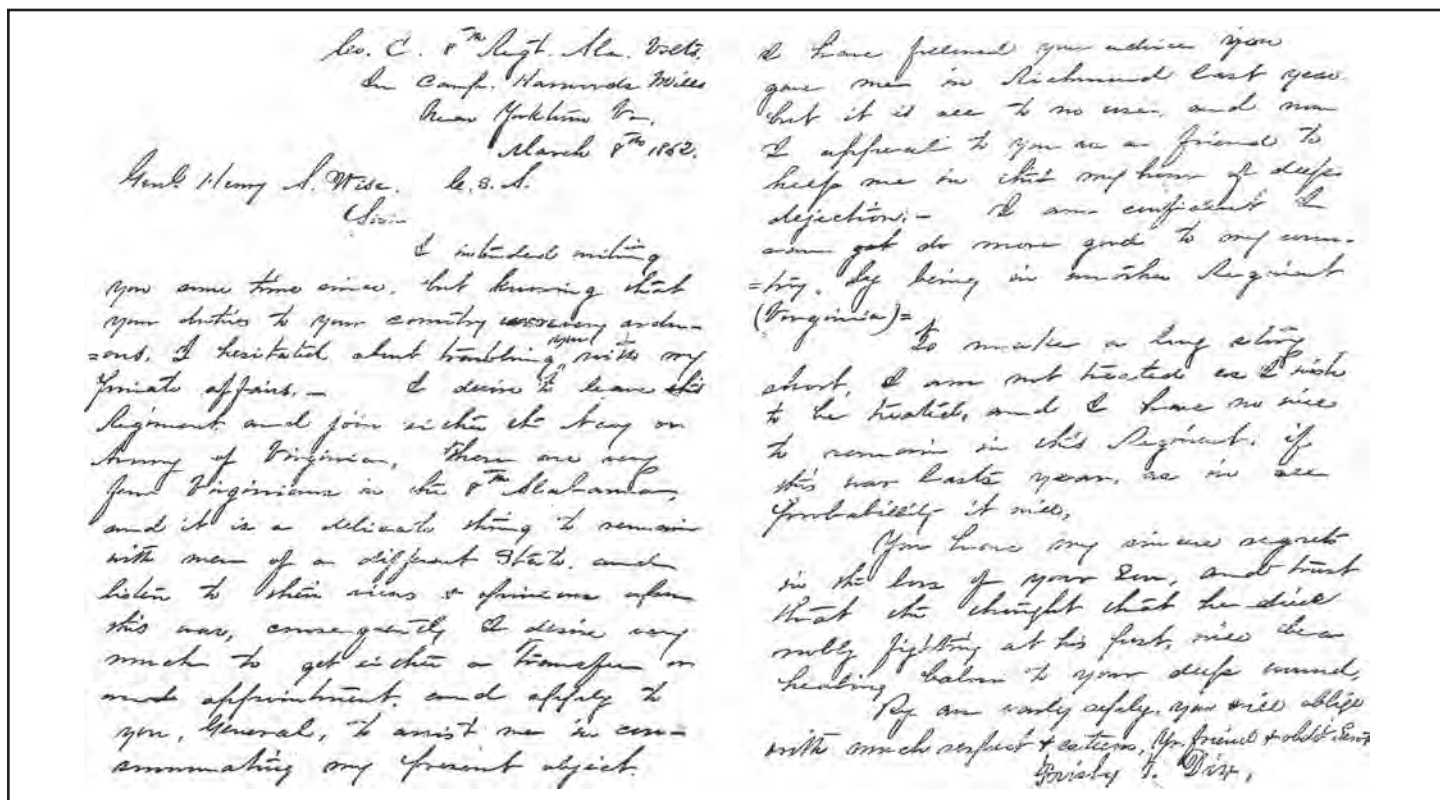 Co. C. 8th Regt. Ala. Vols.
In Camp. Harwoods Mills
Near Yorktown Va,
March 8th 1862.
Genl. Henry A. Wise. C.S.A.
Sir:
I intended writing
you some time since, but knowing that
your duties to your country very ardu-
=ous, I hesitated about troubling you with my
private affairs. — I desire to leave this
Regiment and join either the Navy or
Army of Virginia, There are very
few Virginians in the 8th Alabama,
and it is a delicate thing to remain
with men of a different State, and
listen to their views & opinions upon
this war, consequently I desire very
much to get either a transfer or
appointment, and apply to
you, General, to assist me in con-
summating my present object.
I have followed your advice you
gave me in Richmond last year
but it is all to no use, and now
I appeal to you as a friend to
help me in this my hour of deep
dejection. — I am confident I
can do more good to my coun-
=try, by being in another Regiment
(Virginia) =
To make a long story
short, I am not treated as I wish
to be treated, and I have no wish
to remain in this Regiment, if
this war lasts years, as in all
probability it will,
You have my sincere regrets
in the loss of your Son, and trust
that the thought that he died
nobly fighting at his post, will be a
healing balm to your deep wound,
By an early reply, you will oblige
with much respect & esteem, Yr. friend & obdt Servt
Frisby T. Dix,